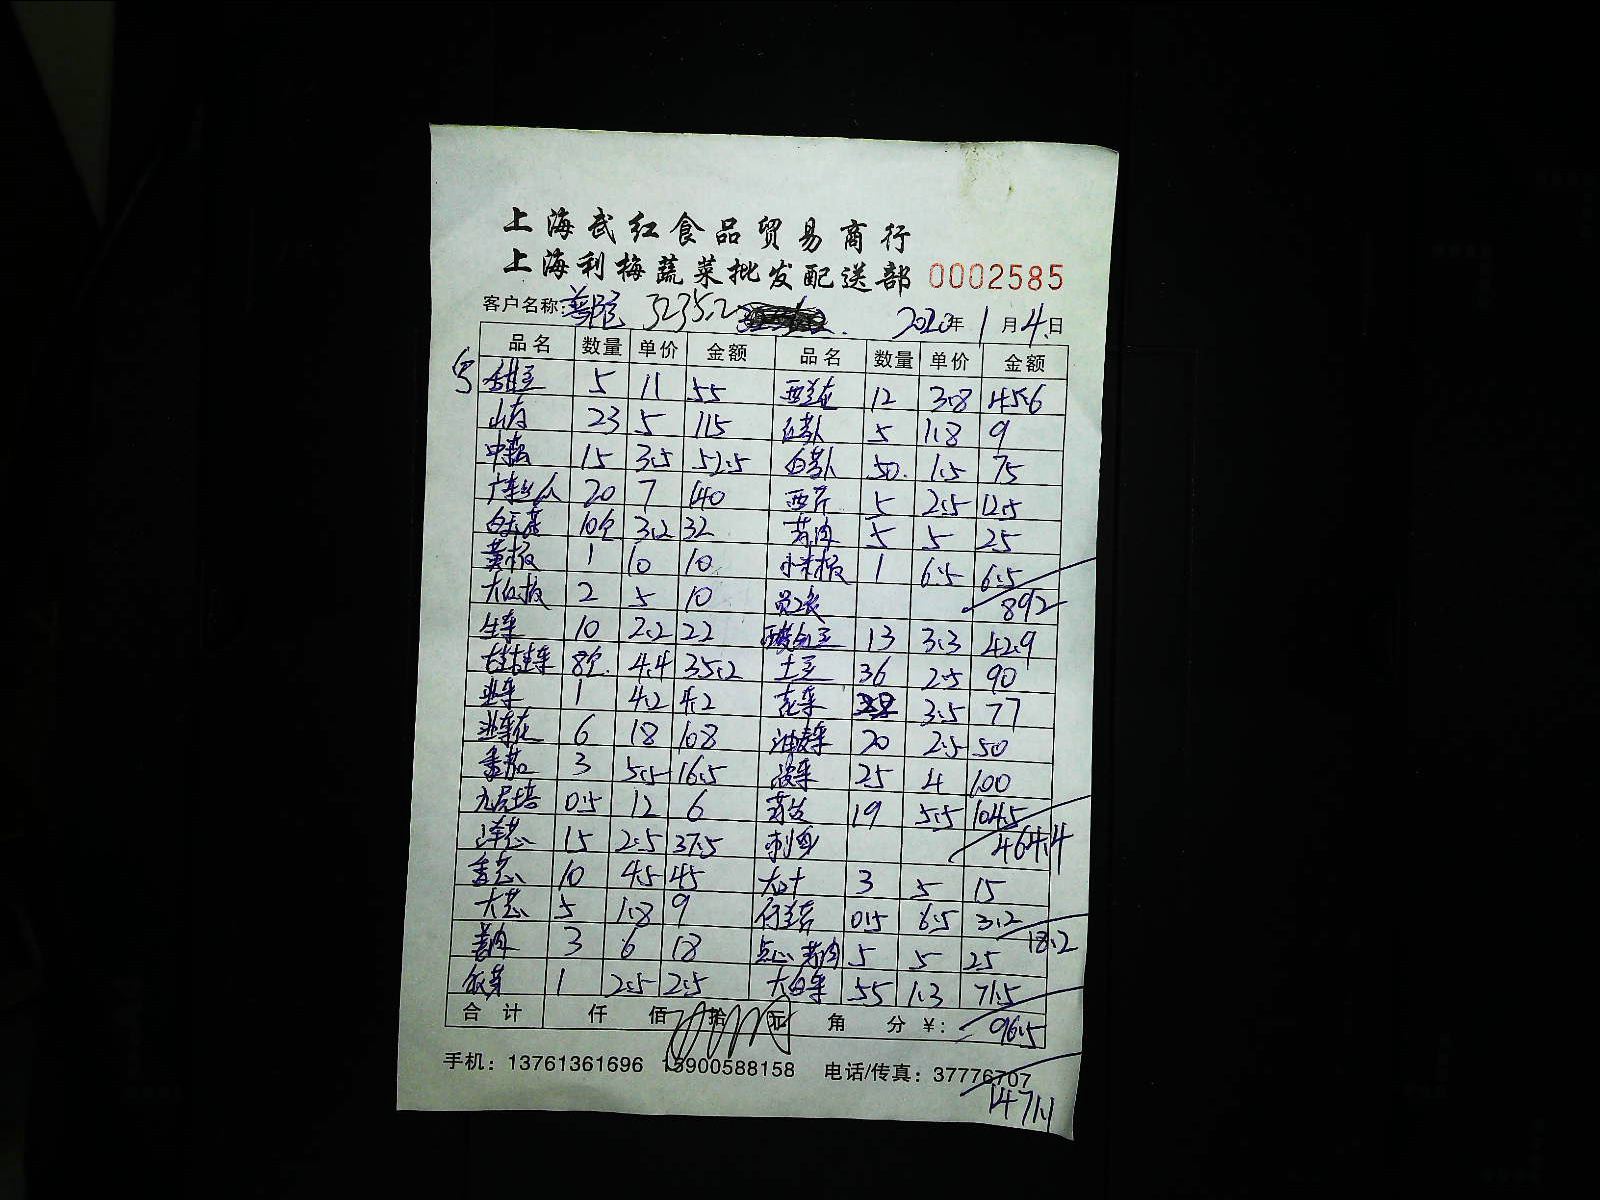 上海武红食品贸易商行
上海利梅蔬菜批发配送部 0002585
客户名称: 3235.2 2020年1月4日
品名 数量 单价 金额 品名 数量 单价 金额
甜豆 5 11 55 西兰花 12 3.8 45.6
山药 23 5 115 红萝卜 5 1.8 9
15 3.5 52.5 白萝卜 50. 1.5 75
广东菜心 20 7 140 西芹 5 2.5 12.5
10包 3.2 32 5 5 25
黄椒 1 10 10 小米椒 1 6.5 6.5
大红椒 2 5 10 员工餐 892
生菜 10 2.2 22 13 3.3 42.9
8包. 4.4 35.2 土豆 36 2.5 90
韭菜 1 4.2 4.2 花菜 3.5 77
韭菜花 6 18 108 油麦菜 20 2.5 50
番茄 3 5.5 16.5 菠菜 25 4 100
九层塔 0.5 12 6 19 5.5 104.5
洋葱 15 2.5 37.5 刺身 464.4
香葱 10 4.5 45 大叶 3 5 15
大葱 5 1.8 9 0.5 6.5 3.2
姜肉 3 6 18 18.2
点心 5 5 25
1 2.5 2.5 大白菜 55 1.3 71.5
合计 仟 佰 拾 元 角 分 ¥: 96.5
手机: 13761361696 15900588158 电话/传真: 37776707
1471.1